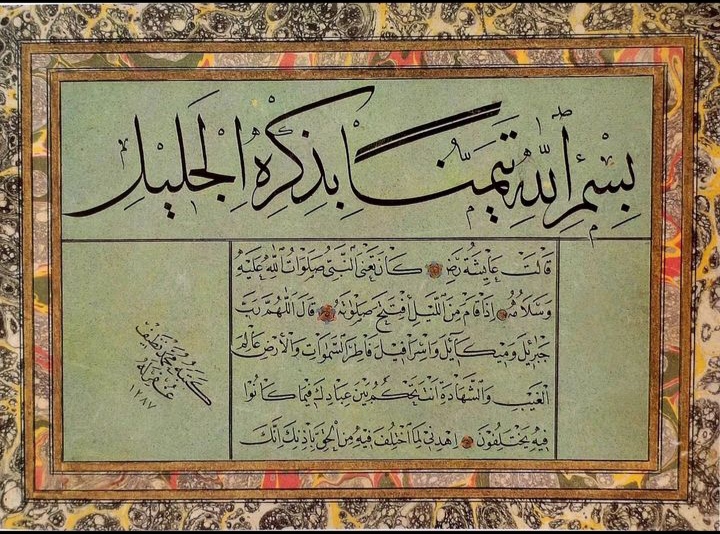 بِسْمِ اللّٰهِ تَيَمُّنًا بِذِكْرِهِ الْجَلِيلِ
قالت عايشة رض كان تعنى النبى صلوات الله عليه
وسلامه اذا قام من الليل افتتح صلوته قال اللهم رب
جبرئيل وميكآئيل واسرافيل فاطر السموات والارض عالم
الغيب والشهادة انت تحكم بين عبادك فيما كانوا
فيه يختلفون اهدنى لما اختلف فيه من الحق باذنك انك
كتبه محمد
غفر له
١٢٨٧